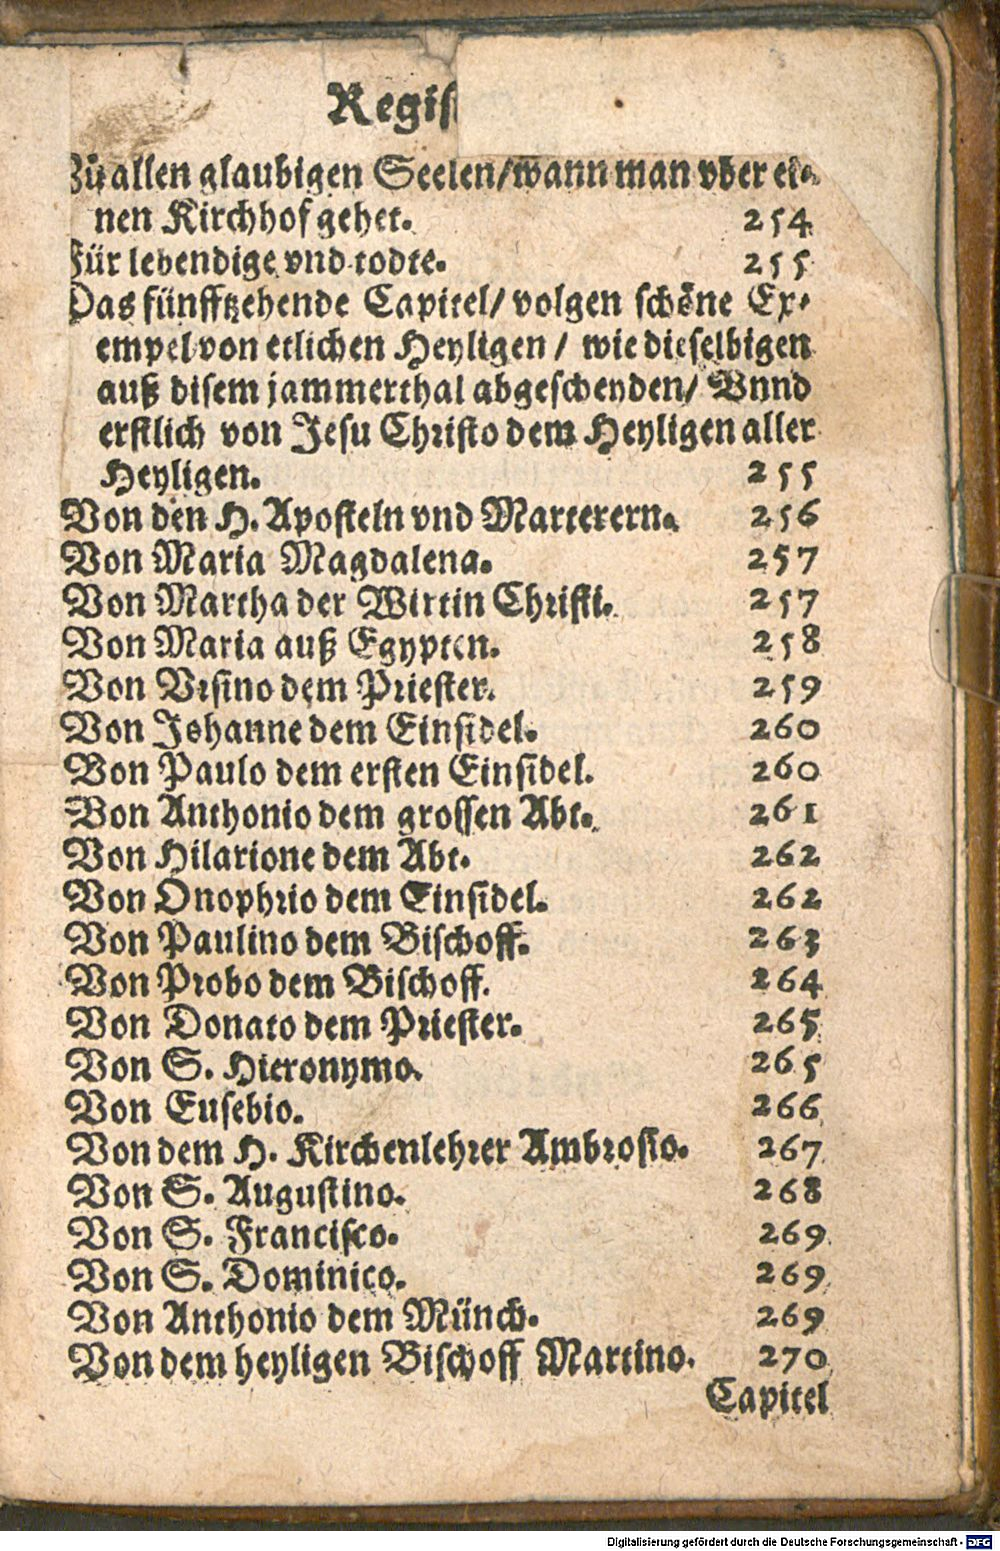 Regis
Zu allen glaubigen Seelen/wann man vber ei-
nen Kirchhof gehet. 254
Für lebendige vnd todte. 255
Das fünfftzehende Capitel/ volgen schöne Ex-
empel von etlichen Heyligen / wie dieselbigen
auß disem jammerthal abgescheyden/ Vnnd
erstlich von Jesu Christo dem Heyligen aller
Heyligen. 255
Von den H. Aposteln vnd Marterern. 256
Von Maria Magdalena. 257
Von Martha der Wirtin Christi. 257
Von Maria auß Egypten. 258
Von Vrsino dem Priester. 259
Von Johanne dem Einsidel. 260
Von Paulo dem ersten Einsidel. 260
Von Anthonio dem grossen Abt. 261
Von Hilarione dem Abt. 262
Von Onophrio dem Einsidel. 262
Von Paulino dem Bischoff. 263
Von Probo dem Bischoff. 264
Von Donato dem Priester. 265
Von S. Hieronymo. 265
Von Eusebio. 266
Von dem H. Kirchenlehrer Ambrosio. 267
Von S. Augustino. 268
Von S. Francisco. 269
Von S. Dominico. 269
Von Anthonio dem Münch. 269
Von dem heyligen Bischoff Martino. 270
Capitel
Digitalisierung gefördert durch die Deutsche Forschungsgemeinschaft - DFG